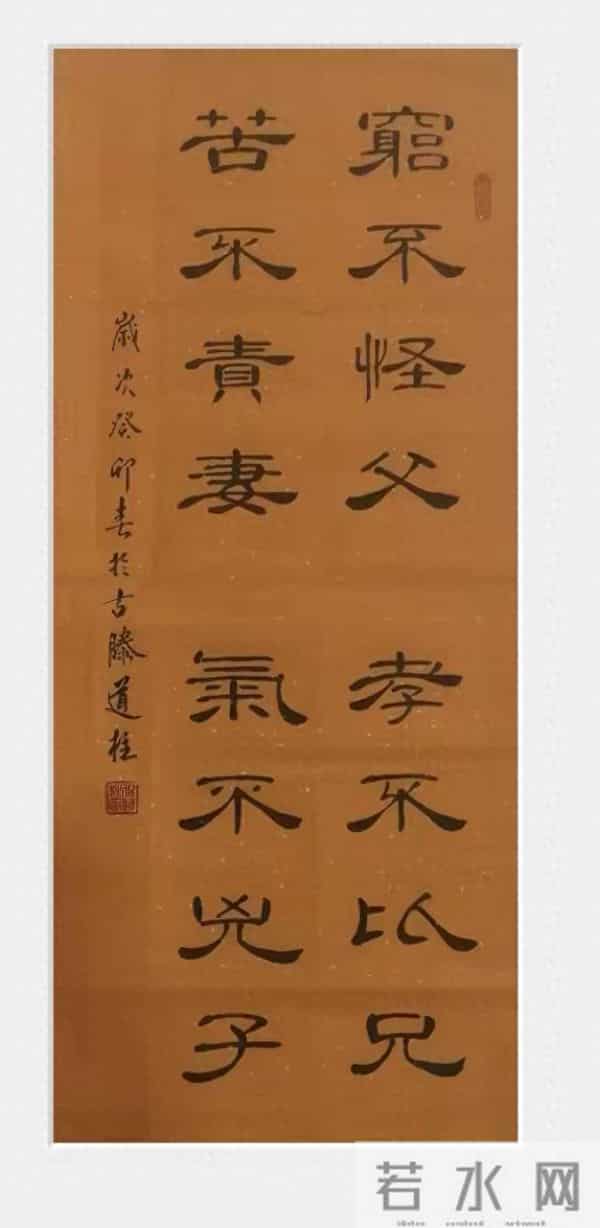 窮不怪父 孝不比兄
苦不責妻 氣不兇子
歲次癸卯春於古滕道
若水网